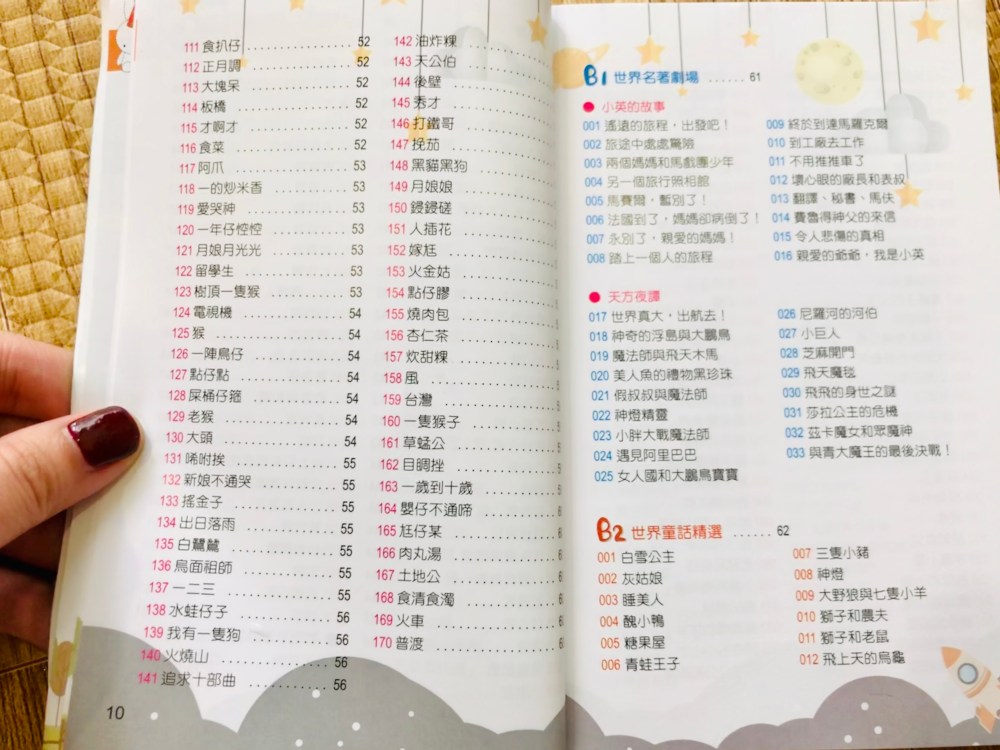 111 食扒仔 52
112 正月調 52
113 大塊呆 52
114 板橋 52
115 才啊才 52
116 食菜 52
117 阿爪 53
118 一的炒米香 53
119 愛哭神 53
120 一年仔悾悾 53
121 月娘月光光 53
122 留學生 53
123 樹頂一隻猴 53
124 電視機 54
125 猴 54
126 一陣鳥仔 54
127 點仔點 54
128 屎桶仔箍 54
129 老猴 54
130 大頭 54
131 唏咐挨 55
132 新娘不通哭 55
133 搖金子 55
134 出日落雨 55
135 白鷺鷥 55
136 烏面祖師 55
137 一二三 55
138 水蛙仔子 56
139 我有一隻狗 56
140 火燒山 56
141 追求十部曲 56
10
142 油炸粿
143 天公伯
144 後壁
145 秀才
146 打鐵哥
147 挽茄
148 黑貓黑狗
149 月娘娘
150 鍰鍰磋
151 人插花
152 嫁尪
153 火金姑
154 點仔膠
155 燒肉包
156 杏仁茶
157 炊甜粿
158 風
159 台灣
160 一隻猴子
161 草蜢公
162 目睭挫
163 一歲到十歲
164 嬰仔不通啼
165 尪仔某
166 肉丸湯
167 土地公
168 食清食濁
169 火車
170 普渡
B1 世界名著劇場 61
小英的故事
001 遙遠的旅程，出發吧！
002 旅途中處處驚險
003 兩個媽媽和馬戲團少年
004 另一個旅行照相館
005 馬賽爾，暫別了！
006 法國到了，媽媽卻病倒了！
007 永別了，親愛的媽媽！
008 踏上一個人的旅程
009 終於到達馬羅克爾
010 到工廠去工作
011 不用推推車了
012 壞心眼的廠長和表叔
013 翻譯、秘書、馬伕
014 費魯得神父的來信
015 令人悲傷的真相
016 親愛的爺爺，我是小英
天方夜譚
017 世界真大，出航去！
018 神奇的浮島與大鵬鳥
019 魔法師與飛天木馬
020 美人魚的禮物黑珍珠
021 假叔叔與魔法師
022 神燈精靈
023 小胖大戰魔法師
024 遇見阿里巴巴
025 女人國和大鵬鳥寶寶
026 尼羅河的河伯
027 小巨人
028 芝麻開門
029 飛天魔毯
030 飛飛的身世之謎
031 莎拉公主的危機
032 茲卡魔女和眾魔神
033 與青大魔王的最後決戰！
B2 世界童話精選 62
001 白雪公主
002 灰姑娘
003 睡美人
004 醜小鴨
005 糖果屋
006 青蛙王子
007 三隻小豬
008 神燈
009 大野狼與七隻小羊
010 獅子和農夫
011 獅子和老鼠
012 飛上天的烏龜